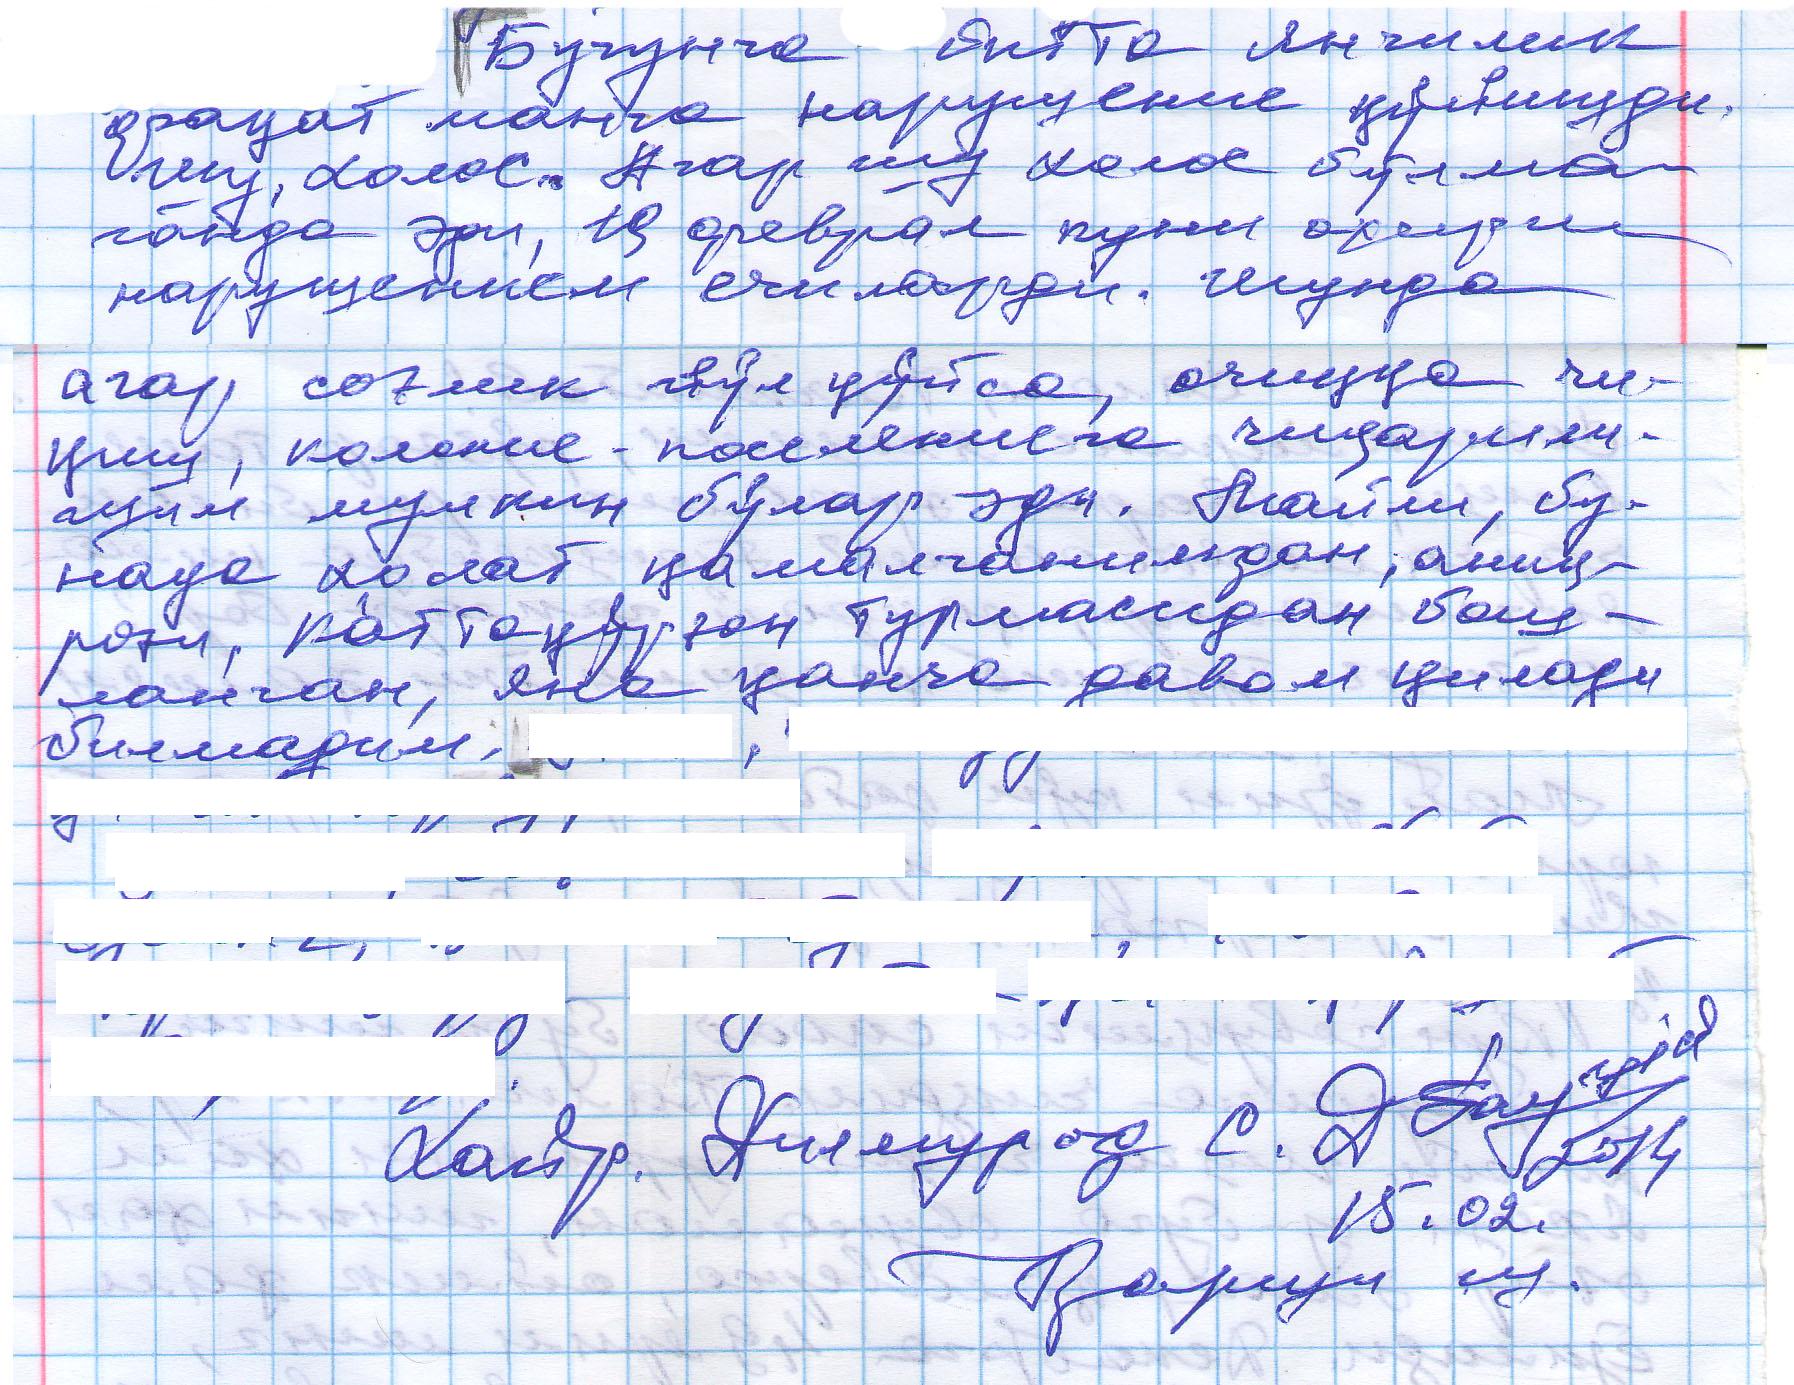 Бугунча битта янгилик
фақат манга нарушение қўйишди.
Шу, холос. Агар шу холос бўлма-
ганда эди, 19 феврал куни охирги
нарушением ечиларди. Шунда
агар соғлик йўл қўйса, очиққа чи-
қиш, колоние-поселениега чиқарили-
шим мумкин бўлар эди. Майли, бу-
нақа ҳолат қамалганимдан, аниқ-
роғи, Каттақўрғон турмасидан бош-
ланган, яна қанча давом қилади
билмадим.
Хайр. Дилмурод С.
2014
15.02.
Қарши ш.